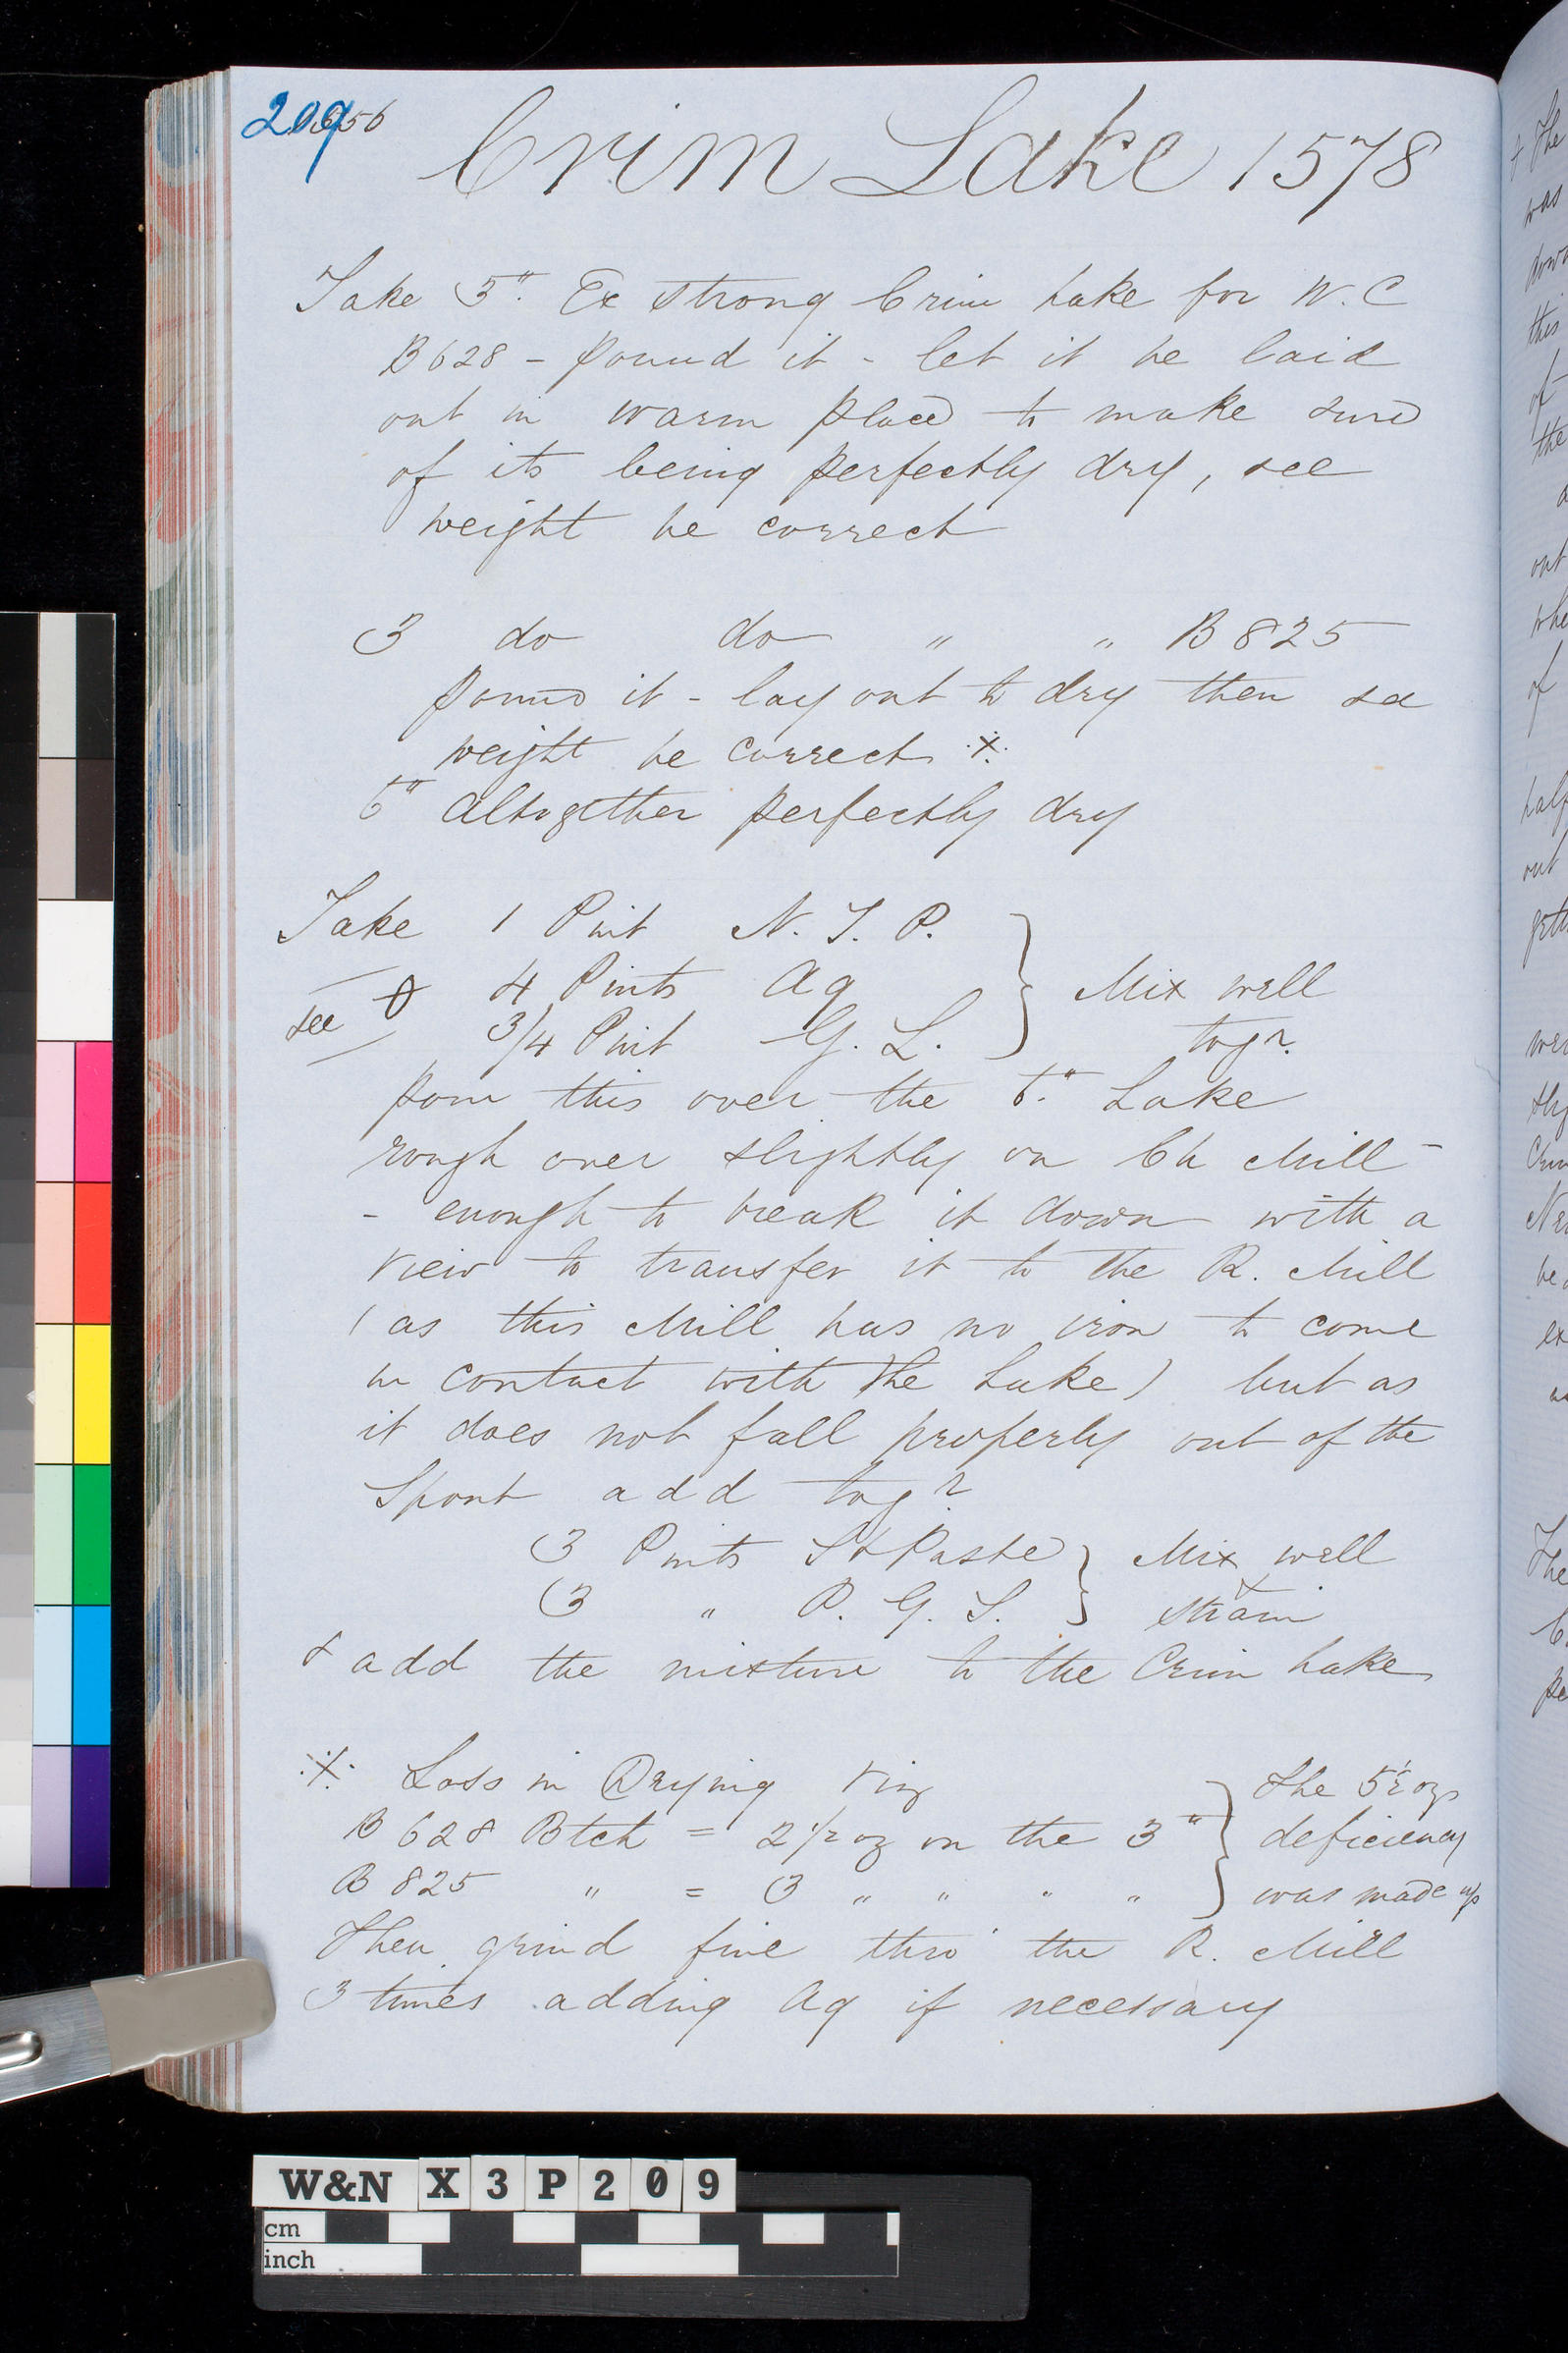 209
Crim Lake 1578
Take 3". Ex Strong Crim Lake for W. C
B 628 - pound it - let it be laid
out in warm place to make sure
of its being perfectly dry, see
weight be correct
3 do do " " B 825
pound it - lay out to dry then see
weight be correct ⁜
6" altogether perfectly dry
Take 1 Pint N. T. P.
4 Pints Aq } Mix well
see
3/4 Pint G. L. togr.
pour this over the 6." Lake
rough over slightly on Ch Mill -
- enough to break it down with a
view to transfer it to the R. Mill
(as this Mill has no iron to come
in contact with the Lake) but as
it does not fall properly out of the
Spout add togr
3 Pints St Paste } Mix well
3 " P. G. S. } & strain
& add the mixture to the Crim Lake
⁜ Loss in Drying viz } the 5½ ozs
B 628 Btch = 2 1/2 oz on the 3" } deficiency
B 825 " = 3 " " " " } was made up
Then grind fine thro' the R. Mill
3 times adding Aq if necessary
The
was
down
this
of
the
out
whe
of
half
out
The
W&N X 3 P 2 0 9
cm
inch